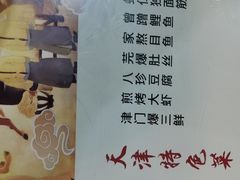 曾蹭鲤鱼
家熬目鱼
芫爆肚丝
八珍豆腐
煎烤大虾
津门爆三鲜
天津特色菜